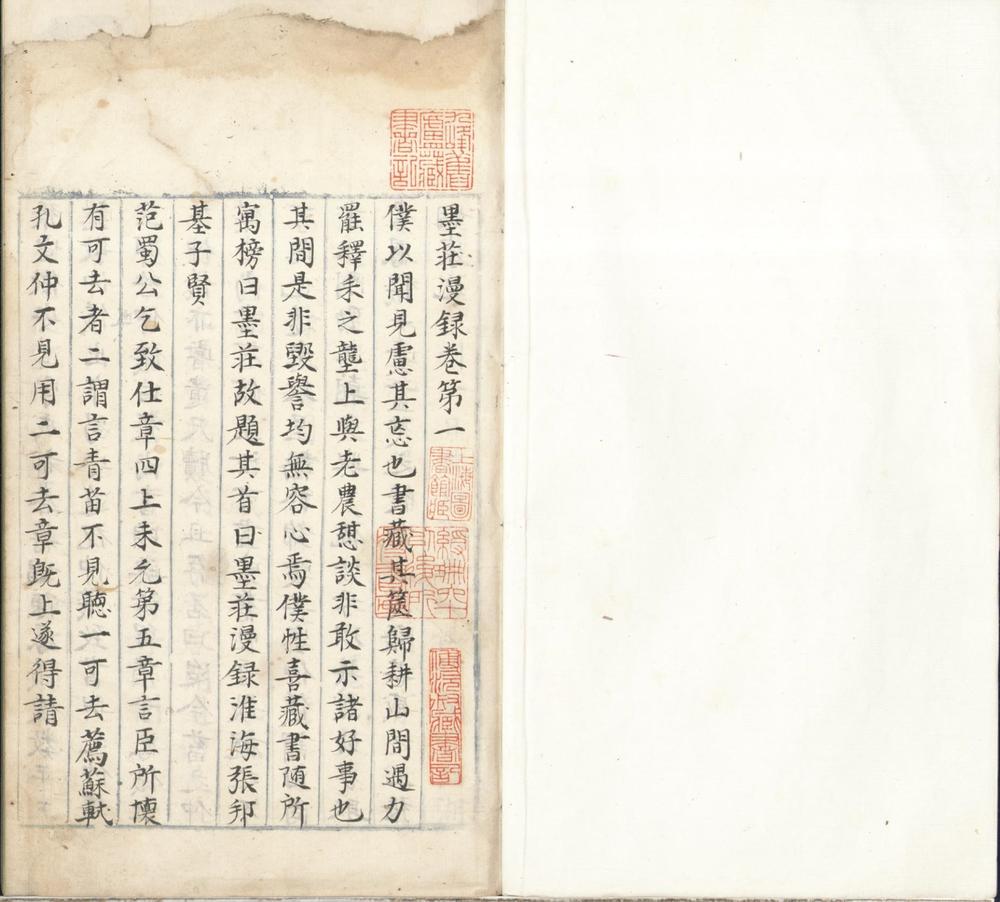 墨莊漫録卷第一
僕以聞見慮其忘也書藏其篋歸耕山間遇力
罷釋耒之壟上與老農憇談非敢示諸好事也
其間是非毀譽均無容心焉僕性喜藏書随所
寓榜曰墨莊故題其首曰墨莊漫録淮海張邦
基子賢
范蜀公乞致仕章四上未允第五章言臣所懐
有可去者二謂言青苗不見聽一可去薦蘇軾
孔文仲不見用二可去章既上遂得請
上海圖書館藏